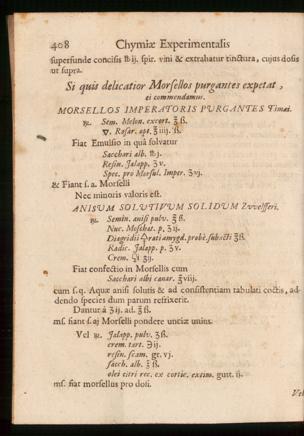 408 Chymiæ Experimentalis
superfunde concisis ℔ij. spir. vini & extrahatur tinctura, cujus dosis
ut supra.
Si quis delicatior Morsellos purgantes expetat,
ei commendamus.
MORSELLOS IMPERATORIS PURGANTES Timæi.
℞. Sem. Melon. excort. ℥ß.
▽. Rosar. apt. ℥iiij. ß.
Fiat Emulsio in quâ solvatur
Sacchari alb. ℔j.
Resin. Jalapp. ʒv.
Spec. pro Morsul. Imper. ʒvj.
& Fiant s. a. Morselli
Nec minoris valoris est.
ANISUM SOLUTIVUM SOLIDUM Zvvelfferi.
℞. Semin. anisi pulv. ℥ß.
Nuc. Moschat. p. ʒij.
Diagridii rati amygd. probè subacti ℥ß.
Radic. Jalapp. p. ʒv.
Crem. ʒij.
Fiat confectio in Morsellis cum
Sacchari albi canar. ℥viij.
cum s. q. Aquæ anisi solutis & ad consistentiam tabulati coctis, ad-
dendo species dum parum refrixerit.
Dantur à ʒij. ad. ℥ß.
ms. fiant s. a. Morselli pondere unciæ unius.
Vel ℞. Jalapp. pulv. ʒß.
crem. tart. ℈ij.
resin. scam. gr. vj.
sacch. alb. ℥ß.
olei citri rec. ex cortic. extim. gutt. ij.
ms. fiat morsellus pro dosi.
Vel